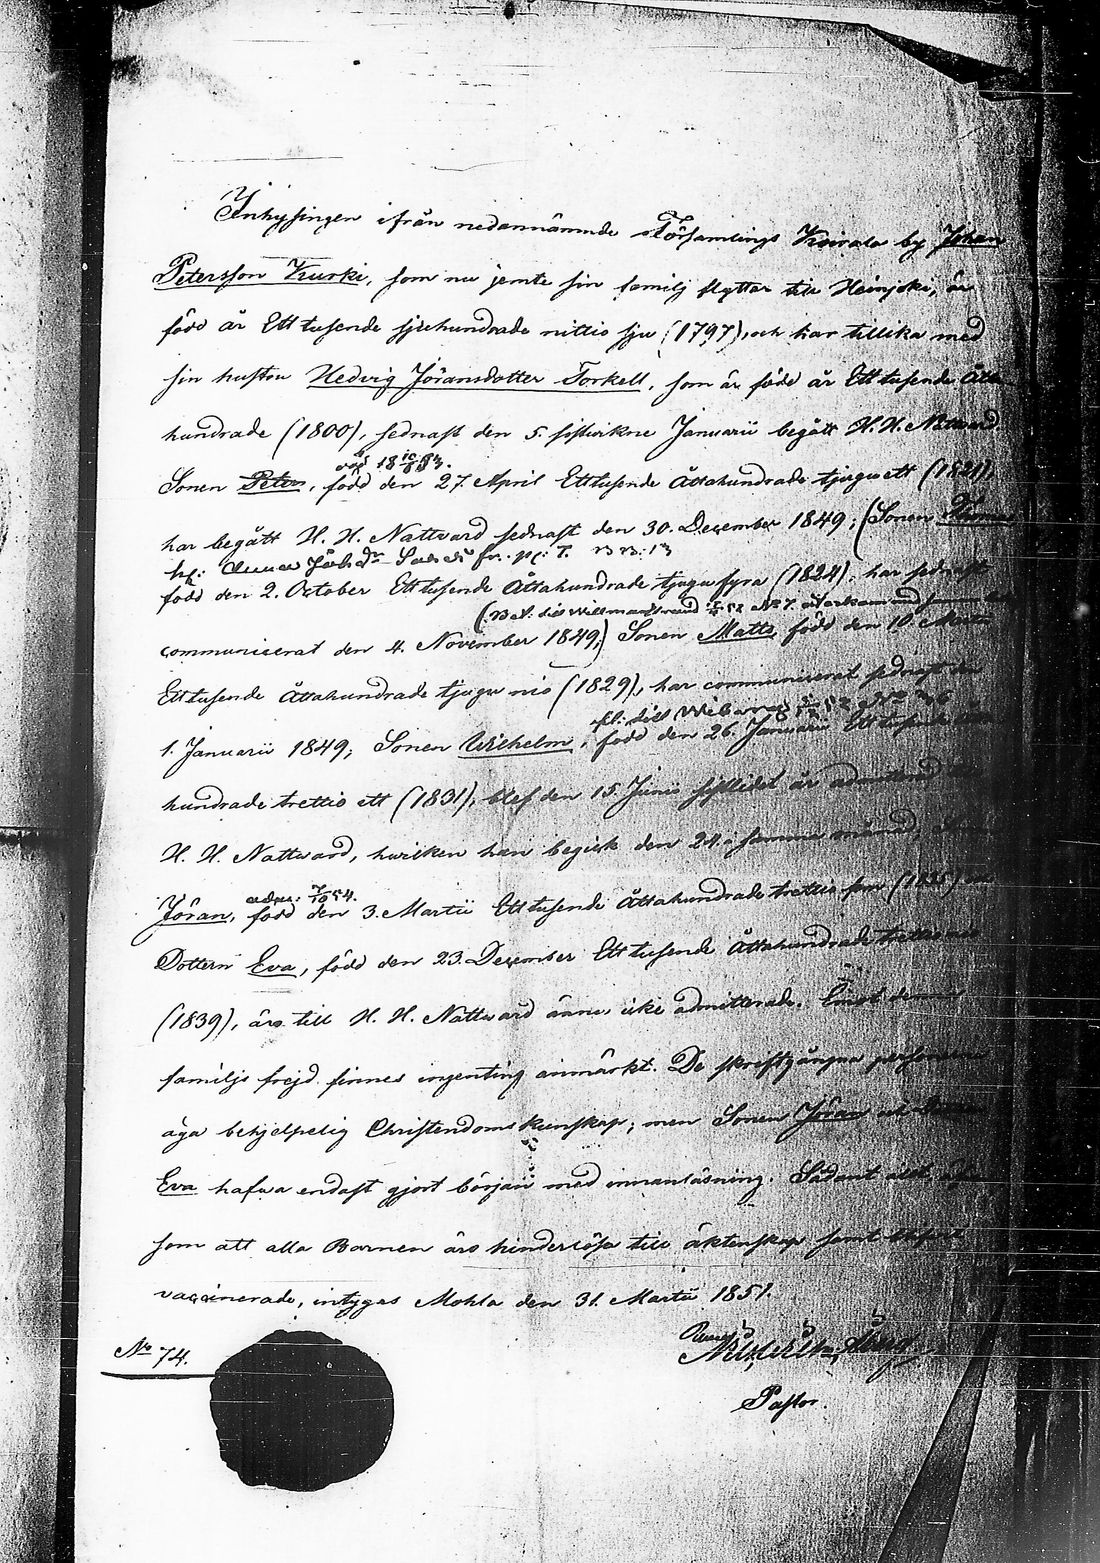 Inhysingen ifrån nedannämnde Församlings Koirala by Johan
Petersson Kurki, som nu jemte sin familj flyttar till Heinjoki, är
född år Ett tusende sjuhundrade nittio sju (1797), och har tillika med
sin hustru Hedvig Jöransdotter Torkell, som är född år Ett tusende åtta
hundrade (1800), sednast den 5. sistvikne Januarii begått H. H. Nattvard.
Sonen Peter, född den 27. April Ett tusende Åttahundrade tjugu ett (1821),
har begått H. H. Nattvard sednast den 30. December 1849; (Sonen Thomas
född den 2. October Ett tusende Åttahundrade tjugu fyra (1824), har sednast
communicerat den 4. November 1849;) Sonen Matts, född den 10. Martii
Ett tusende Åttahundrade tjugu nio (1829), har communicerat sednast den
1. Januarii 1849; Sonen Wilhelm, född den 26. Januarii Ett tusende åtta
hundrade trettio ett (1831), blef den 15. Junii sistlidet år admitterad
H. H. Nattvard, hvilken han begick den 24. i samma månad, Sonen
Jöran, född den 3. Martii Ett tusende Åttahundrade trettio fem (1835)
Dottern Eva, född den 23. December Ett tusende Åttahundrade trettio nio
(1839), äro till H. H. Nattvard ännu icke admitterade. Emot denna
familjs frejd finnes ingenting anmärkt. De skriftgångna personerna
äga behjelpelig Christendoms kunskap; men Sonen Jöran och Dottern
Eva hafva endast gjort början med innanläsning. Sådant allt,
som att alla Barnen äro hinderlösa till äktenskap samt
vaccinerade, intygas Mohla den 31. Martii 1851.
No 74.
Pastor.